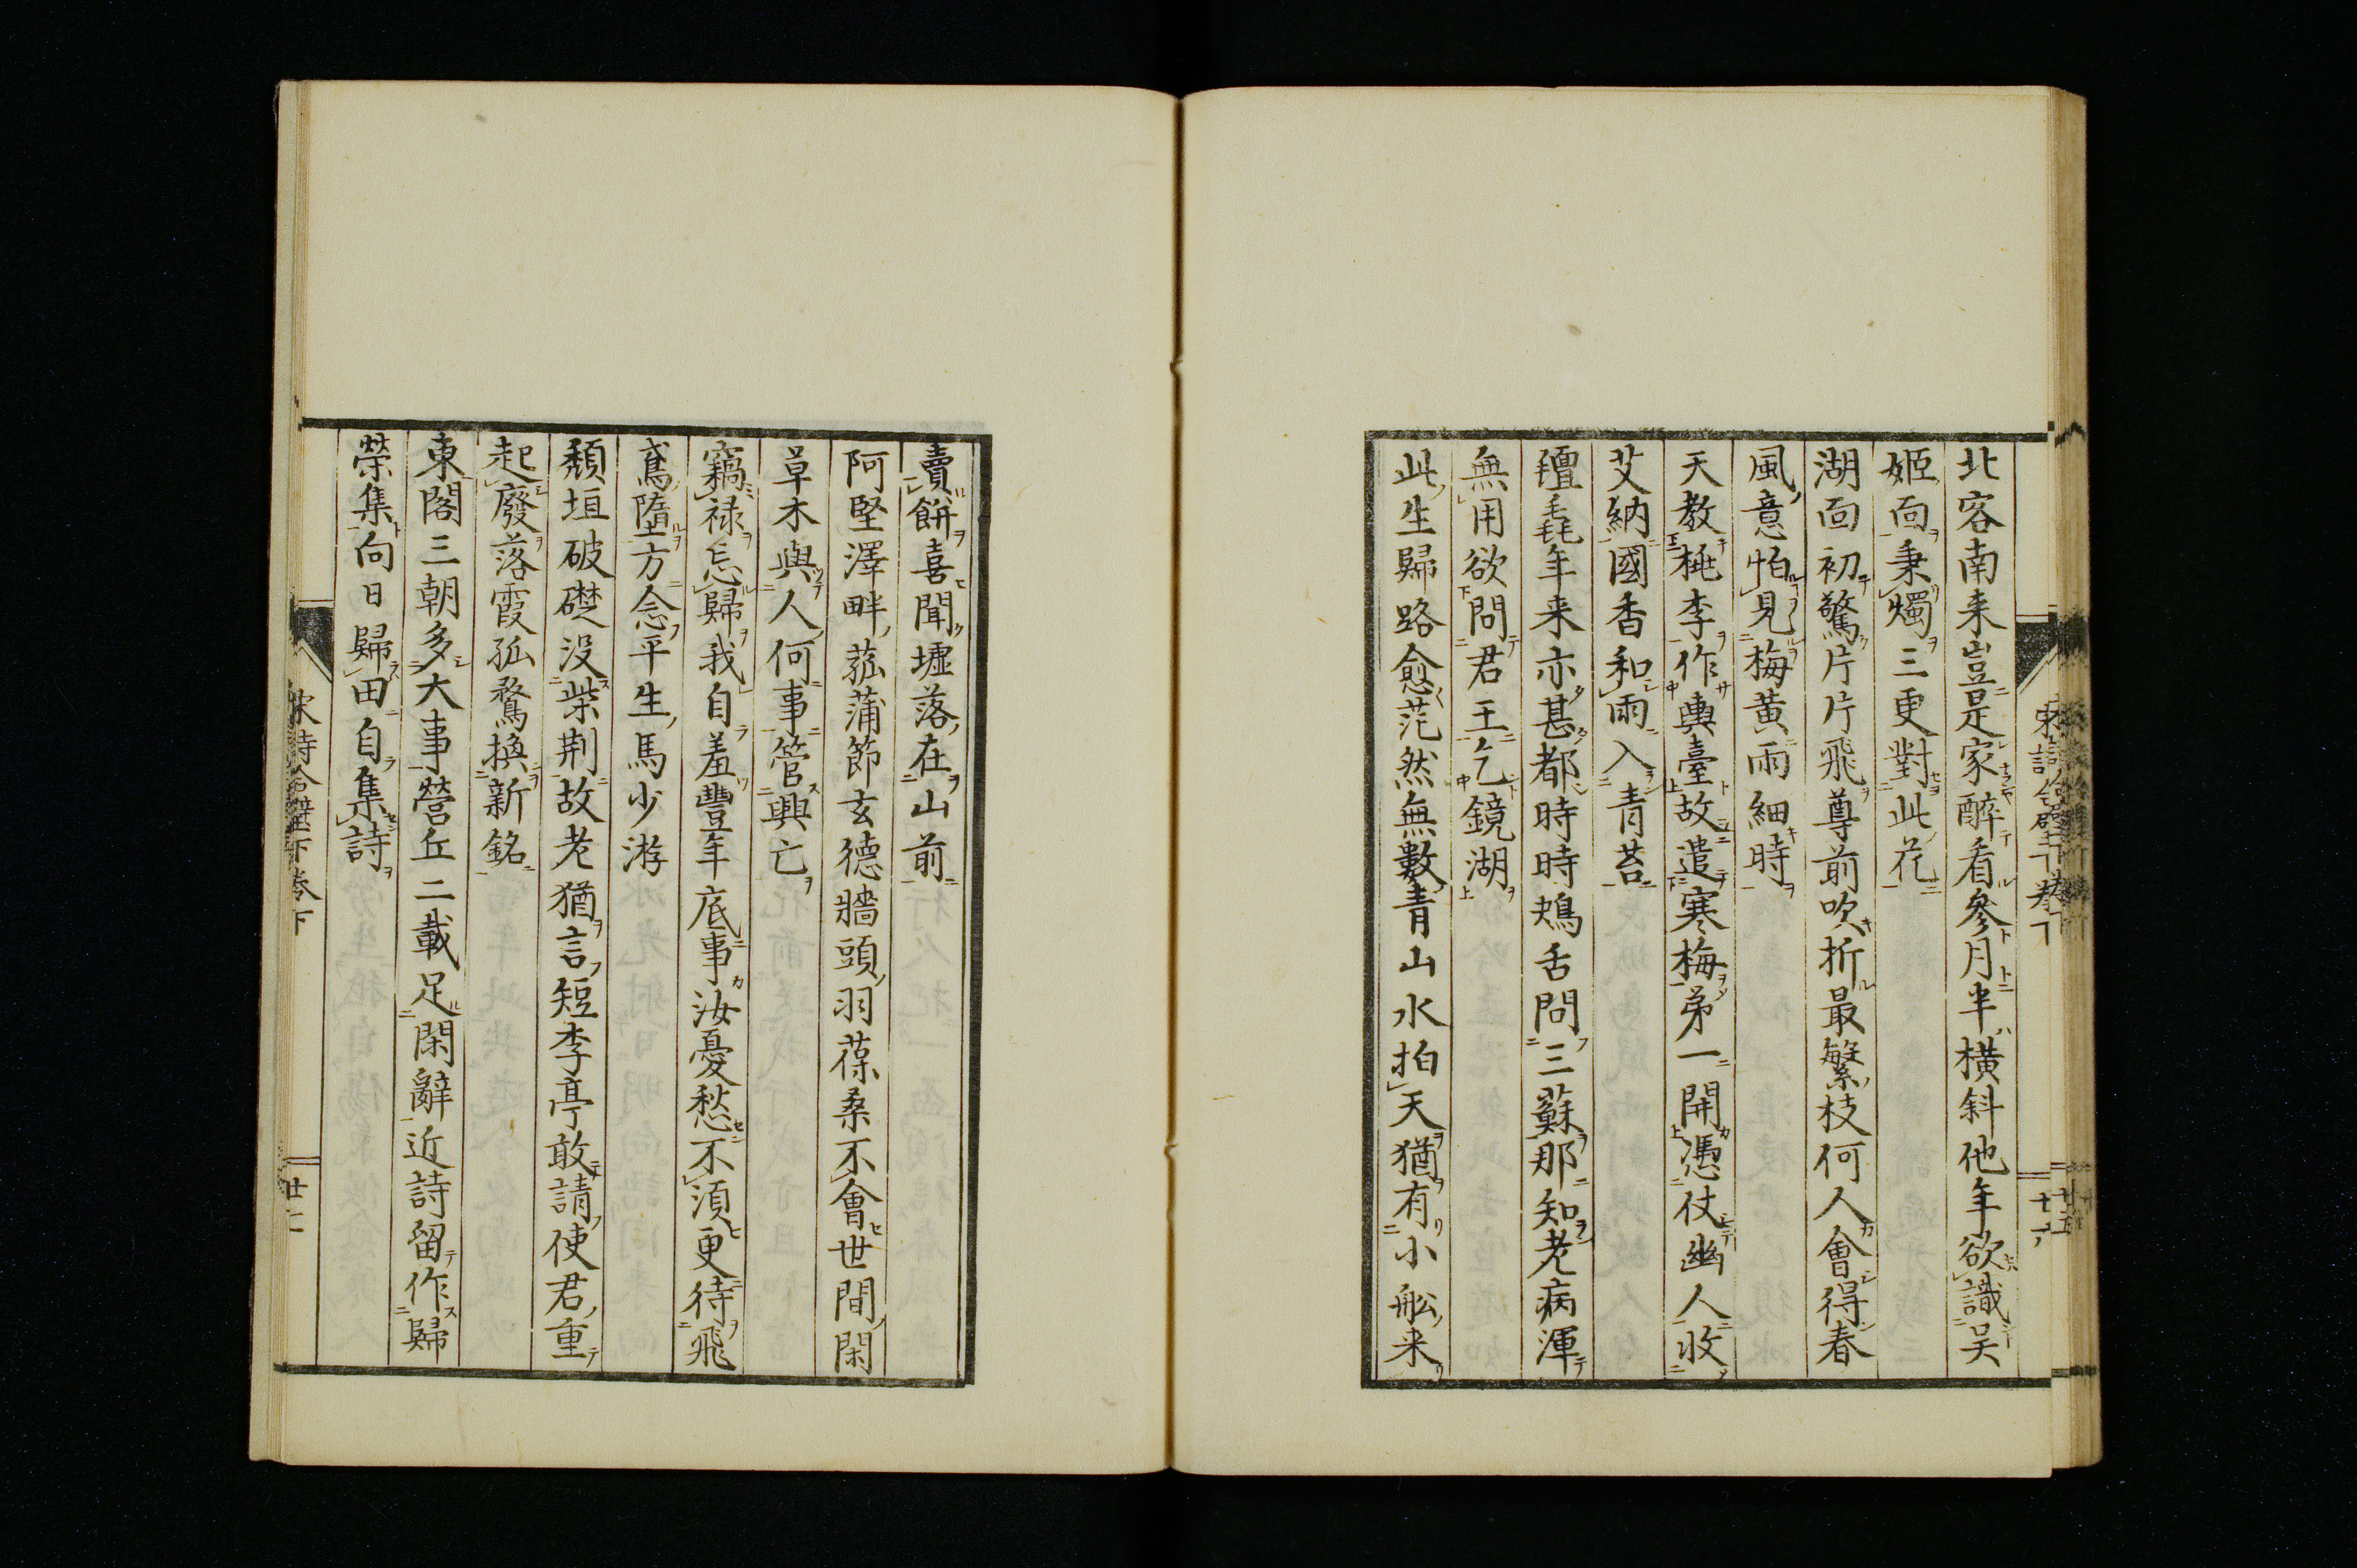 北客南来豈是家醉看參月半橫斜他年欲識吴
姬面秉燭三更對此花
湖面初驚片片飛尊前吹折最繁枝何人會得春
風意怕見梅黄雨細時
天教桃李作輿臺故遣寒梅弟一開憑仗幽人收
艾納國香和雨入青苔
氊毳年来亦甚都時時鴂舌問三蘇那知老病渾
無用欲問君王乞鏡湖
此生歸路愈茫然無數青山水拍天猶有小舩来
賣餅喜聞墟落在山前
阿堅澤畔菰蒲節玄德牆頭羽葆桑不會世間閑
草木與人何事管興亡
竊禄忘歸我自羞豐年底事汝憂愁不湏更待飛
鳶墮方念平生馬少游
頽垣破礎没柴荆故老猶言短李亭敢請使君重
起廢落霞孤鶩換新銘
東閣三朝多大事營丘二載足閑辭近詩留作歸
榮集向日歸田自集詩